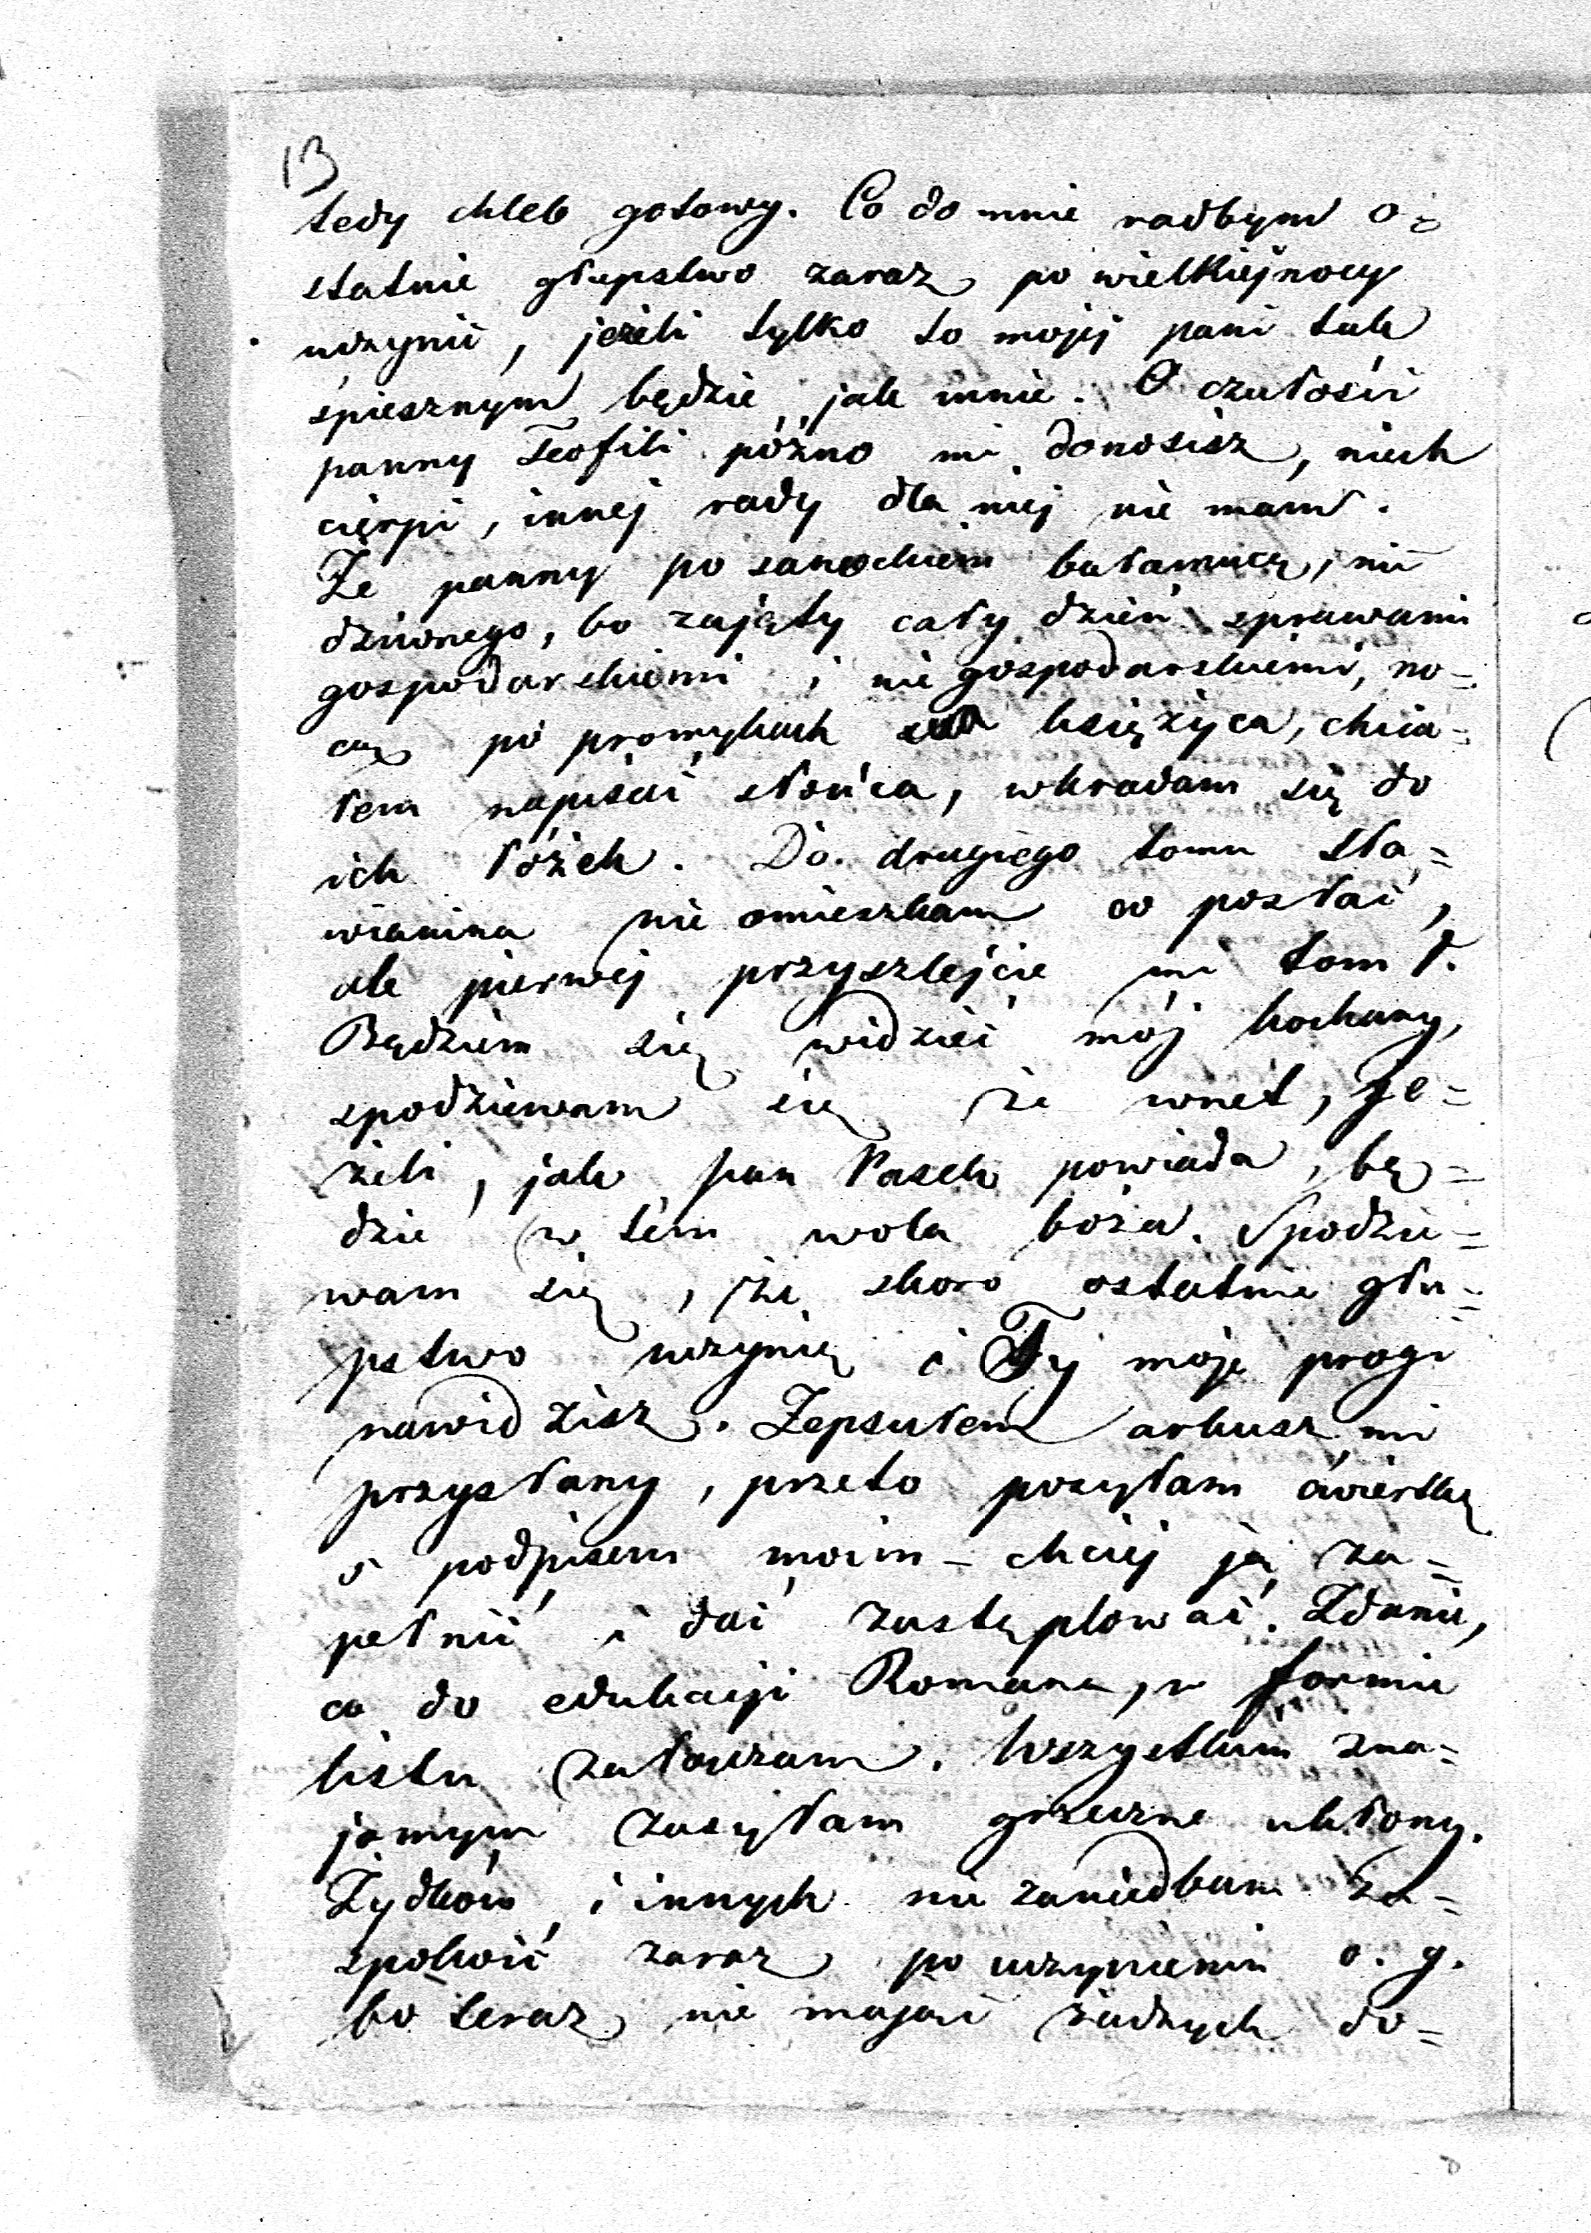 13
tedy chleb gotowy. Co do mnie radbym o=
statnie głupstwo zaraz po wielkiéjnocy
uczynić, jeżeli tylko to mojéj pani tak
śpiesznym będzie, jak mnie. O czułości
panny Teofili późno mi donosisz, niech
cierpi, innéj rady dla niéj nie mam.
Że panny po sanockiem bałamucę, nic
dziwnego, bo zajęty cały dzień sprawami
gospodarskiemi i nie gospodarskiemi, no=
cą po promykach księżyca, chcia=
łem napisać słońca, wkradam się do
ich łóżek. Do drugiego tomu Sła=
wianina nie omieszkam co posłać,
ale pierwéj przyszlejcie mi tom I.
Będziem się widzieć mój kochany,
spodziewam się że wnet, je=
żeli, jak pan Pasek powiada, bę=
dzie w tém wola boża. Spodzie=
wam się, że skoro ostatnie głu=
pstwo uczynię i Ty moje progi
nawidzisz. Zepsułem arkusz mi
przysłany, przeto posyłam ćwiertkę
s podpisem moim – chciéj ją za=
pełnić i dać zastęplować. Zdanie,
co do edukacji Romana, w formie
listu załączam. Wszystkim zna=
jomym zasyłam grzeczne ukłony.
Żydków i innych nie zaniedbam za=
spokoić zaraz po uczynieniu o. g.
bo teraz nie mając żadnych do=